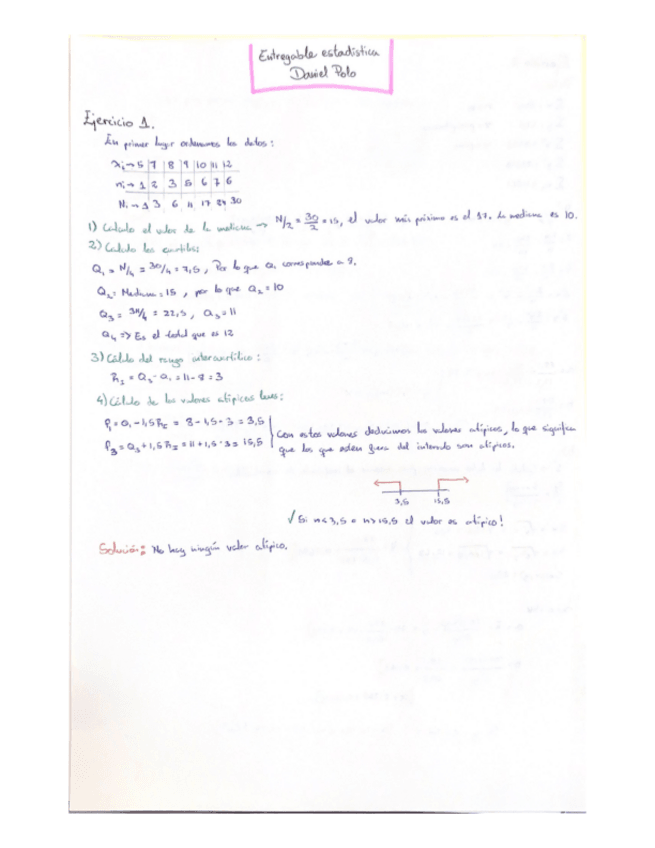 Entregable estadística
Daniel Polo
Ejercicio 1.
En primer lugar ordenamos los datos:
xi → 5 7 8 9 10 11 12
ni → 1 2 3 5 6 7 6
Ni → 1 3 6 11 17 24 30
1) Calculo el valor de la mediana => N/2 = 30/2 = 15, el valor más próximo es el 17. La mediana es 10.
2) Calculo los cuartiles
Q1 = N/4 = 30/4 = 7,5, Por lo que Q1 corresponde a
Q2 = Mediana = 15, por lo que Q2 = 10
Q3 = 3N/4 = 22,5, Q3 = 11
Q4 => Es el total que es 12
3) Cálculo del rango intercuartílico:
RI = Q3 - Q1 = 11 - 8 = 3
4) Cálculo de los valores atípicos leves:
f1 = Q1 - 1,5 RI = 8 - 1,5 · 3 = 3,5
f3 = Q3 + 1,5 RI = 11 + 1,5 · 3 = 15,5
Con estos valores deducimos los valores atípicos, lo que significa
que los que esten fuera del intervalo son atípicos.
3,5 15,5
✓ Si n < 3,5 o n > 15,5 el valor es atípico!
Solución: No hay ningún valor atípico.